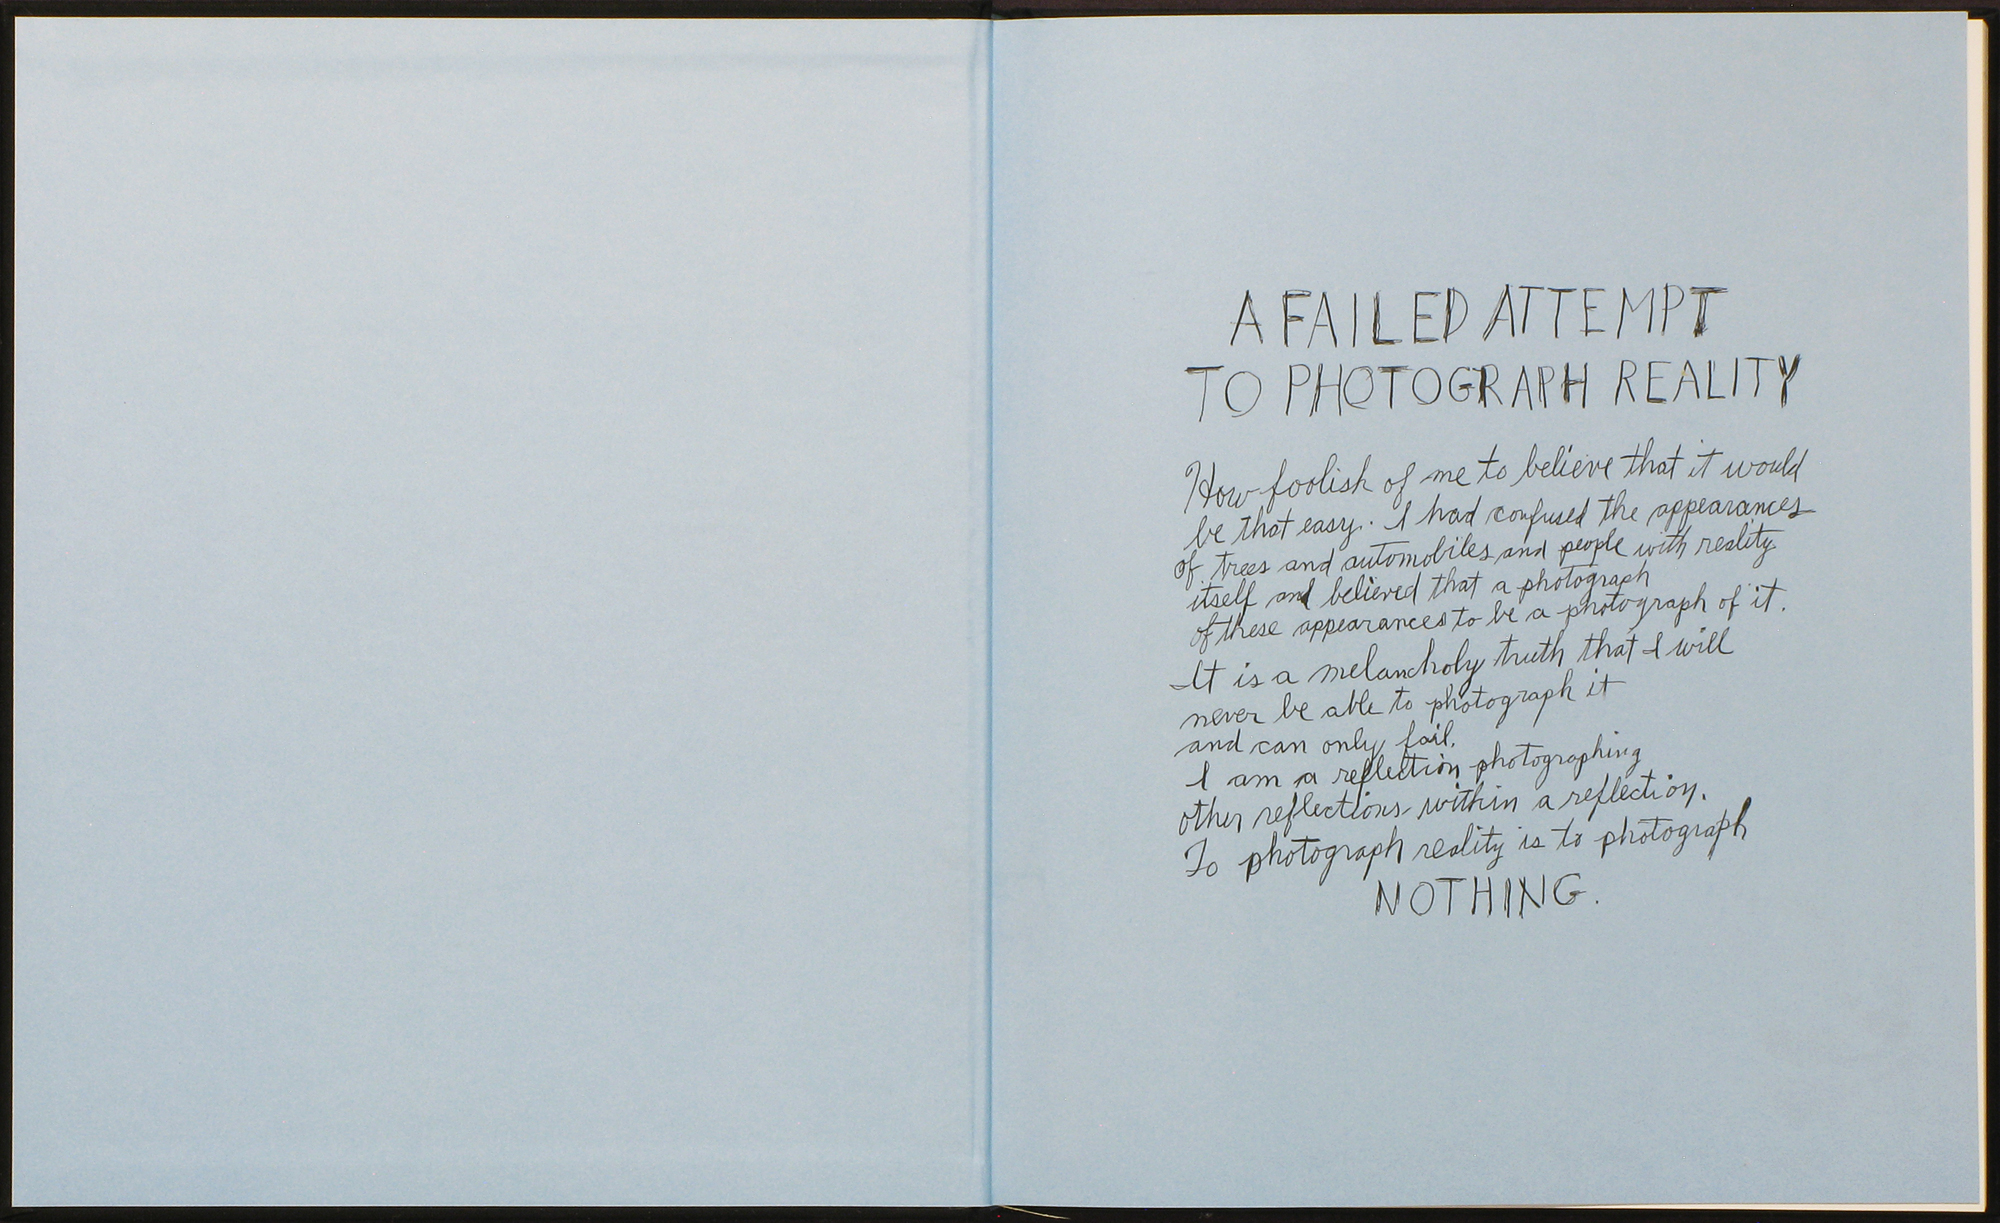 A FAILED ATTEMPT
TO PHOTOGRAPH REALITY
How foolish of me to believe that it would
be that easy. I had confused the appearances
of trees and automobiles and people with reality
itself and believed that a photograph
of these appearances to be a photograph of it.
It is a melancholy truth that I will
never be able to photograph it
and can only fail.
I am a reflection photographing
other reflections within a reflection.
To photograph reality is to photograph
NOTHING.